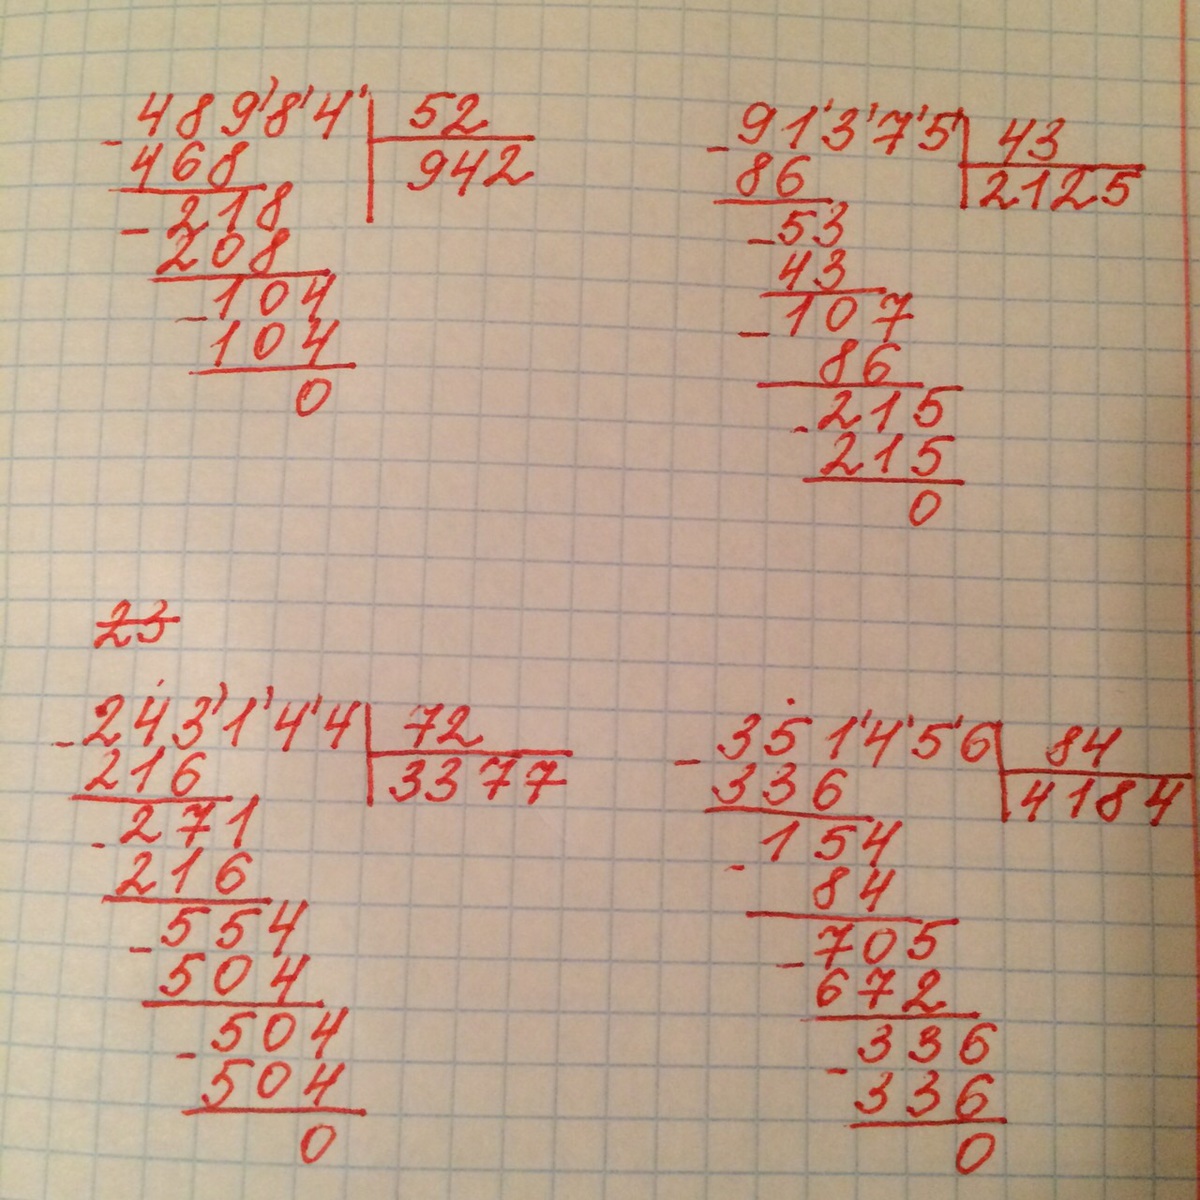 48984 52
- 468 942
- 218
208
- 104
104
0
91375 43
- 86 2125
- 53
43
- 107
86
- 215
215
0
23
243144 72
- 216 3377
- 271
216
- 554
504
- 504
504
0
351456 84
- 336 4184
- 154
84
- 705
672
- 336
336
0